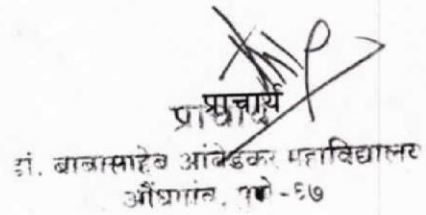 प्राचार्य
प्राचार्य
डॉ. बाबासाहेब आंबेडकर महाविद्यालय
औंधगांव, पुणे -६७